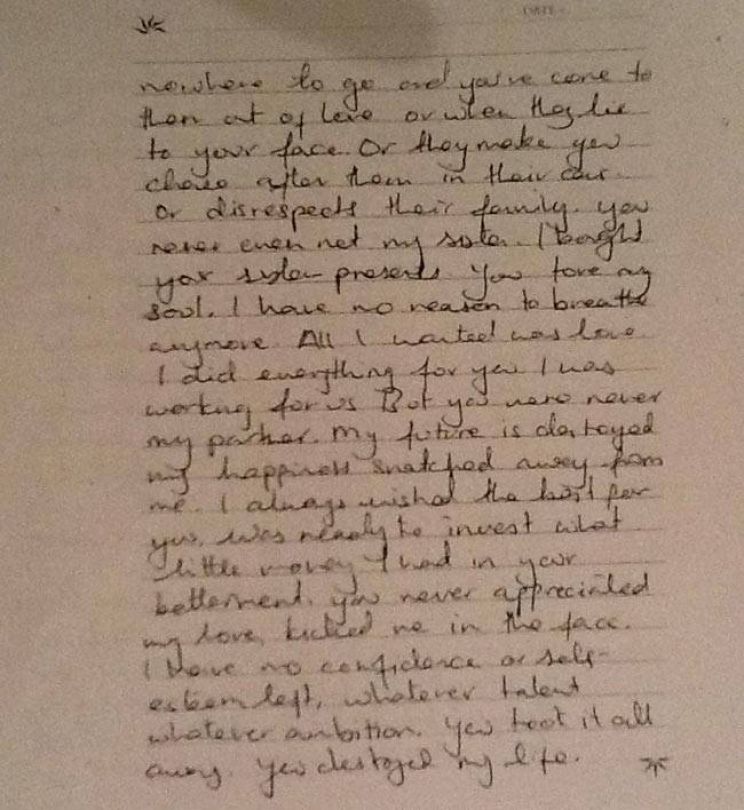 DATE
nowhere to go and you've come to
them out of love or when they lie
to your face. Or they make you
chase after them in their car.
Or disrespects their family. You
never even met my sister. I bought
your sister presents. You tore my
soul. I have no reason to breathe
anymore. All I wanted was love.
I did everything for you I was
working for us But you were never
my partner. My future is destroyed
my happiness snatched away from
me. I always wished the best for
you, was ready to invest what
little money I had in your
betterment. You never appreciated
my love, kicked me in the face.
I have no confidence or self-
esteem left, whatever talent
whatever ambition. You took it all
away. You destroyed my life.